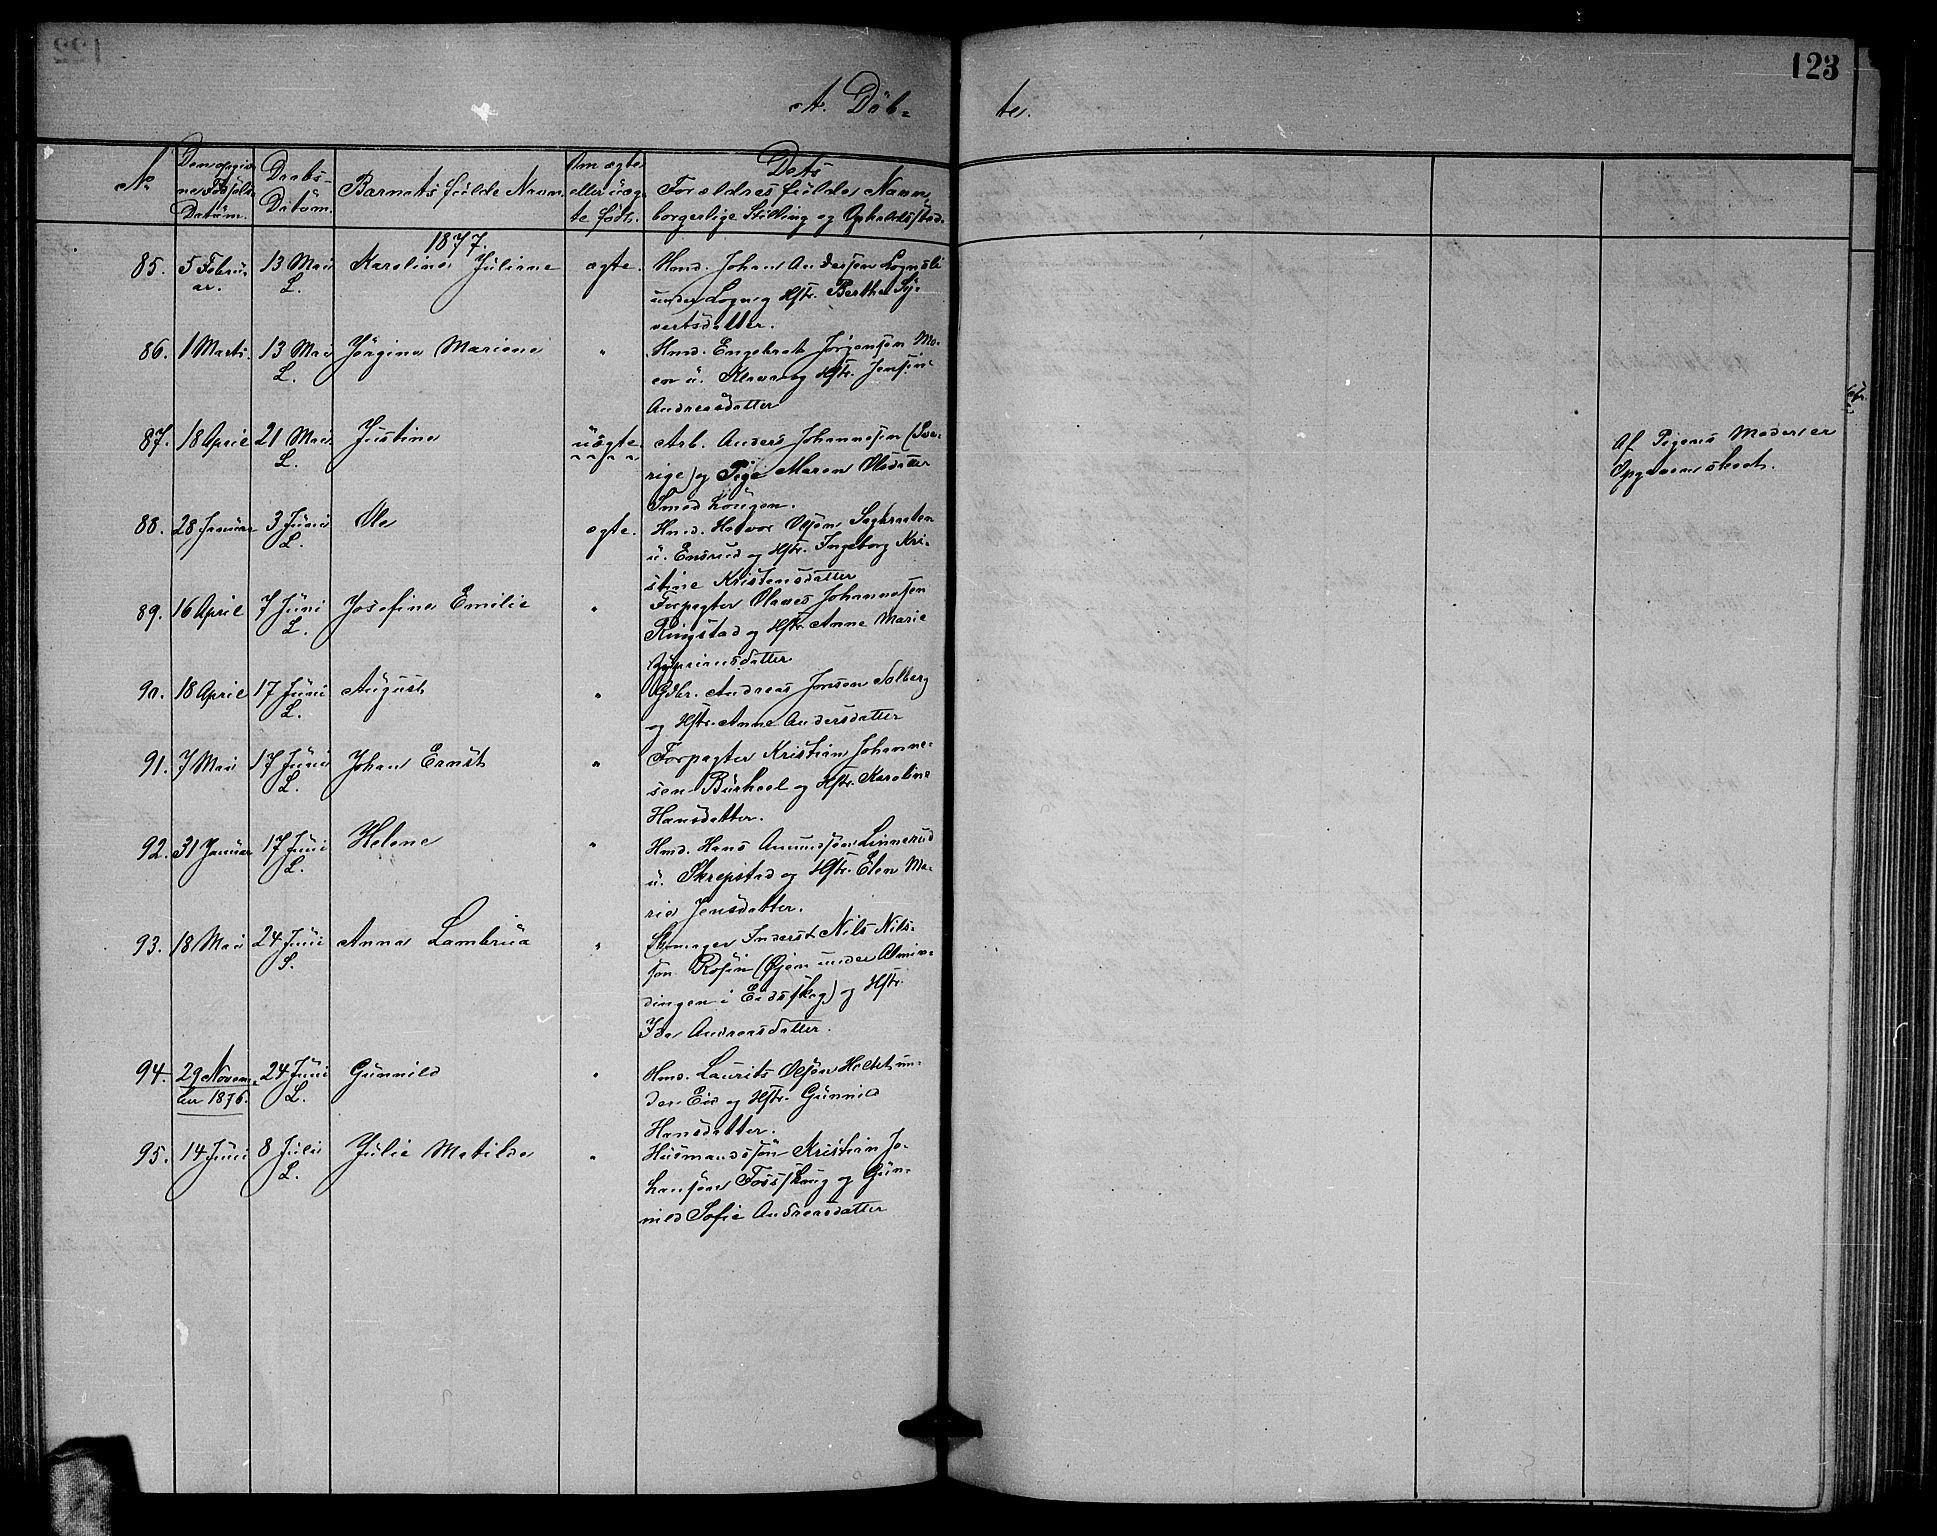 123
A. Döb-
te.
No
Den opgiv-
ne Fødsels
Datum.
Daabs-
Datum.
Barnets fulde Navn.
Om ægte
eller uæg-
te født.
Dets
Forældres fulde Navn,
borgerlige Stilling og Opholdssted.
1877.
85. 5 Febru- 13 Mai Karoline Juliane ægte. Hmd. Johan Andersen Lognsli
ar. L. under Logn og Hstr. Berthe Sy-
vertsdatter.
86. 1 Marts. 13 Mai Jørgine Mariene " Hmd. Engebret Jørgensen Mo-
L. en u. Klaver og Hstr. Jensine
Andreasdatter
87. 18 April 21 Mai Justine uægte Arb. Anders Johannesen (Sve-
L. rige) og Pige Maren Olsdatter
Smedhaugen.
Af Pigens Moder er
Opgaven skeet.
88. 28 Januar 3 Juni Ole ægte. Hmd. Halvor Olsøn Sagbraaten
L. u. Ensrud og Hstr. Ingeborg Kri-
stine Kristensdatter
89. 16 April 7 Juni Josefine Emilie " Forpagter Olaves Johannesen
L. Ringstad og Hstr. Anne Marie
Zypriansdatter
90. 18 April 17 Juni August " Gdbr. Andreas Jonsen Solberg
L. og Hstr. Anne Andersdatter
91. 7 Mai 17 Juni Johan Ernst " Forpagter Kristian Johanne-
L. sen Burhol og Hstr. Karoline
Hansdatter.
92. 31 Januar 17 Juni Helene " Hmd. Hans Amundsøn Linnerud
L. u. Skrepstad og Hstr. Elen Ma-
rie Jensdatter.
93. 18 Mai 24 Juni Anna Lambrüa " Skomager Inderst Nils Nils-
S. søn Rosin (Øjen under Almin-
dingen i Eidsskog) og Hstr.
Ida Andreasdatter.
94. 29 Novem- 24 Juni Gunnild " Hmd. Laurits Olsøn Holtet un-
ber 1876. L. der Eid og Hstr. Gunnild
Hansdatter.
95. 14 Juni 8 Juli Julie Matilde " Husmandssøn Kristian Jo-
L. hansøn Fossskaug og Gun-
nild Sofie Andreasdatter